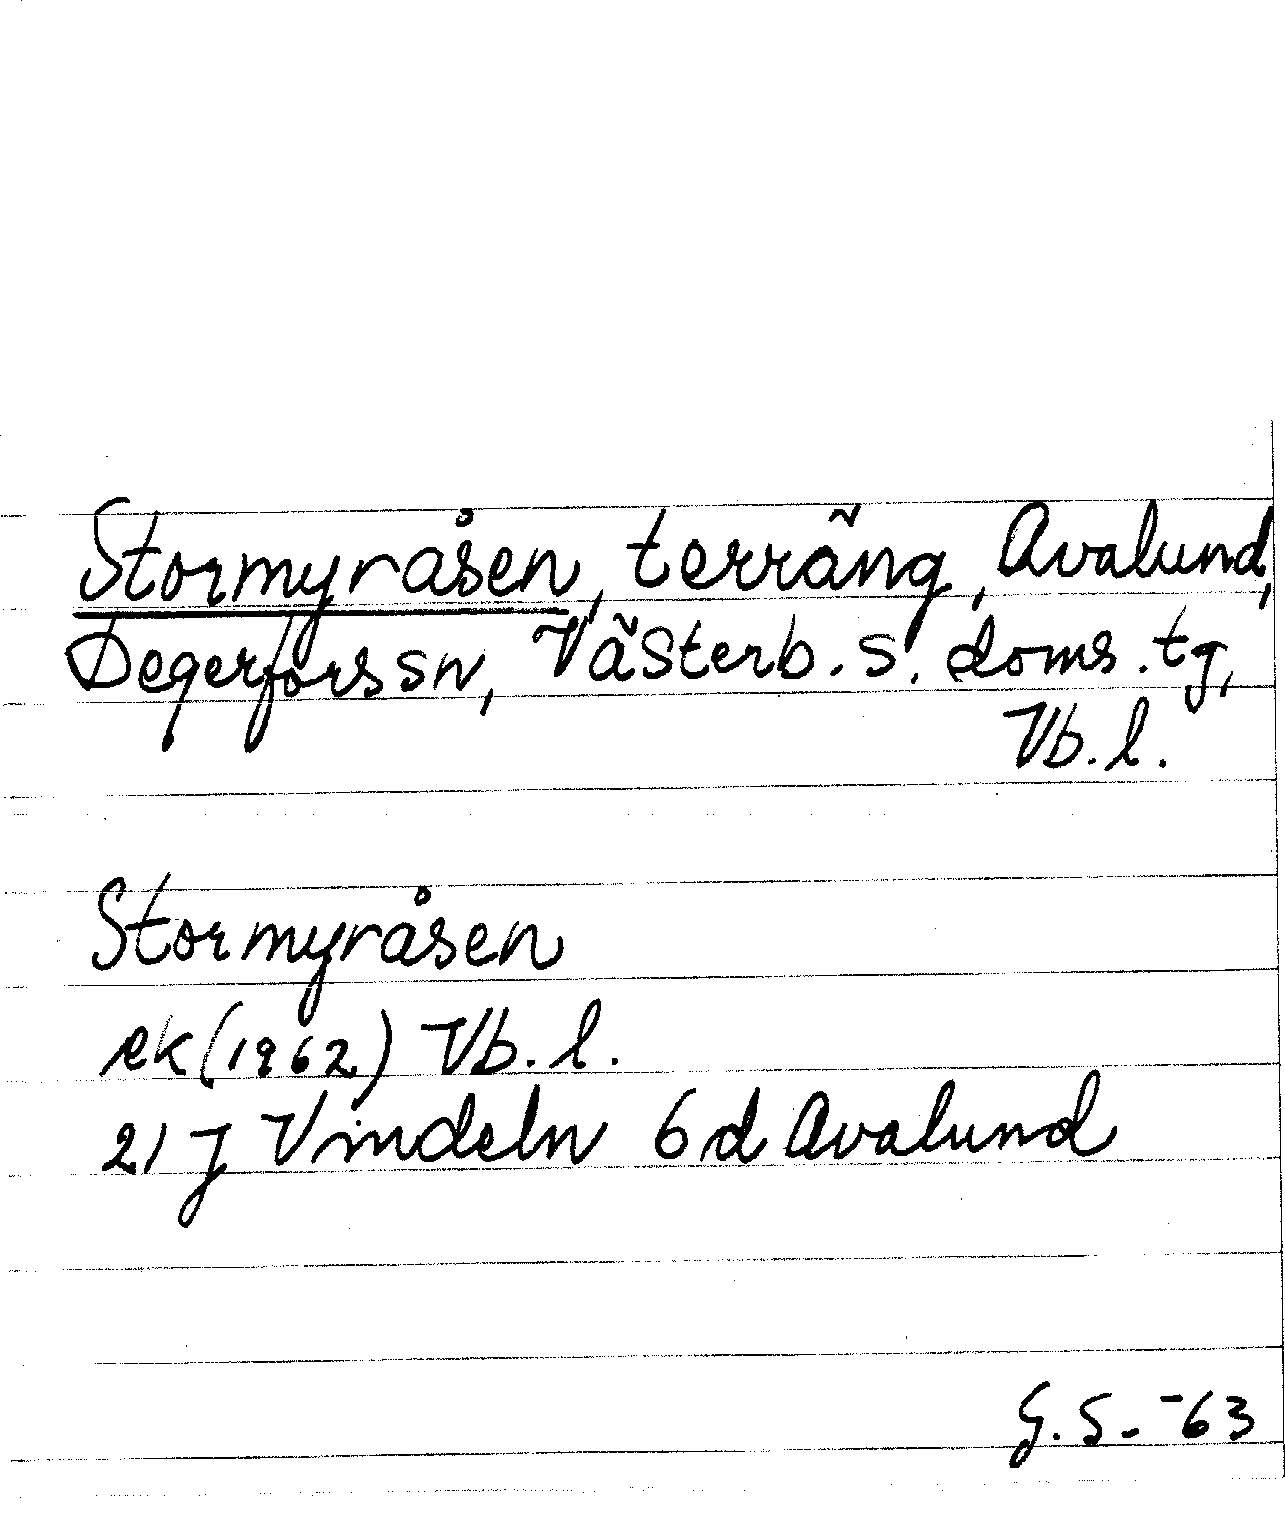 Stormyråsen, terräng, Avalund,
Degerfors sn, Västerb. s. doms. tg,
Vb. l.
Stormyråsen
ek (1962) Vb. l.
21 J Vindeln 6 d Avalund
G. S. -63